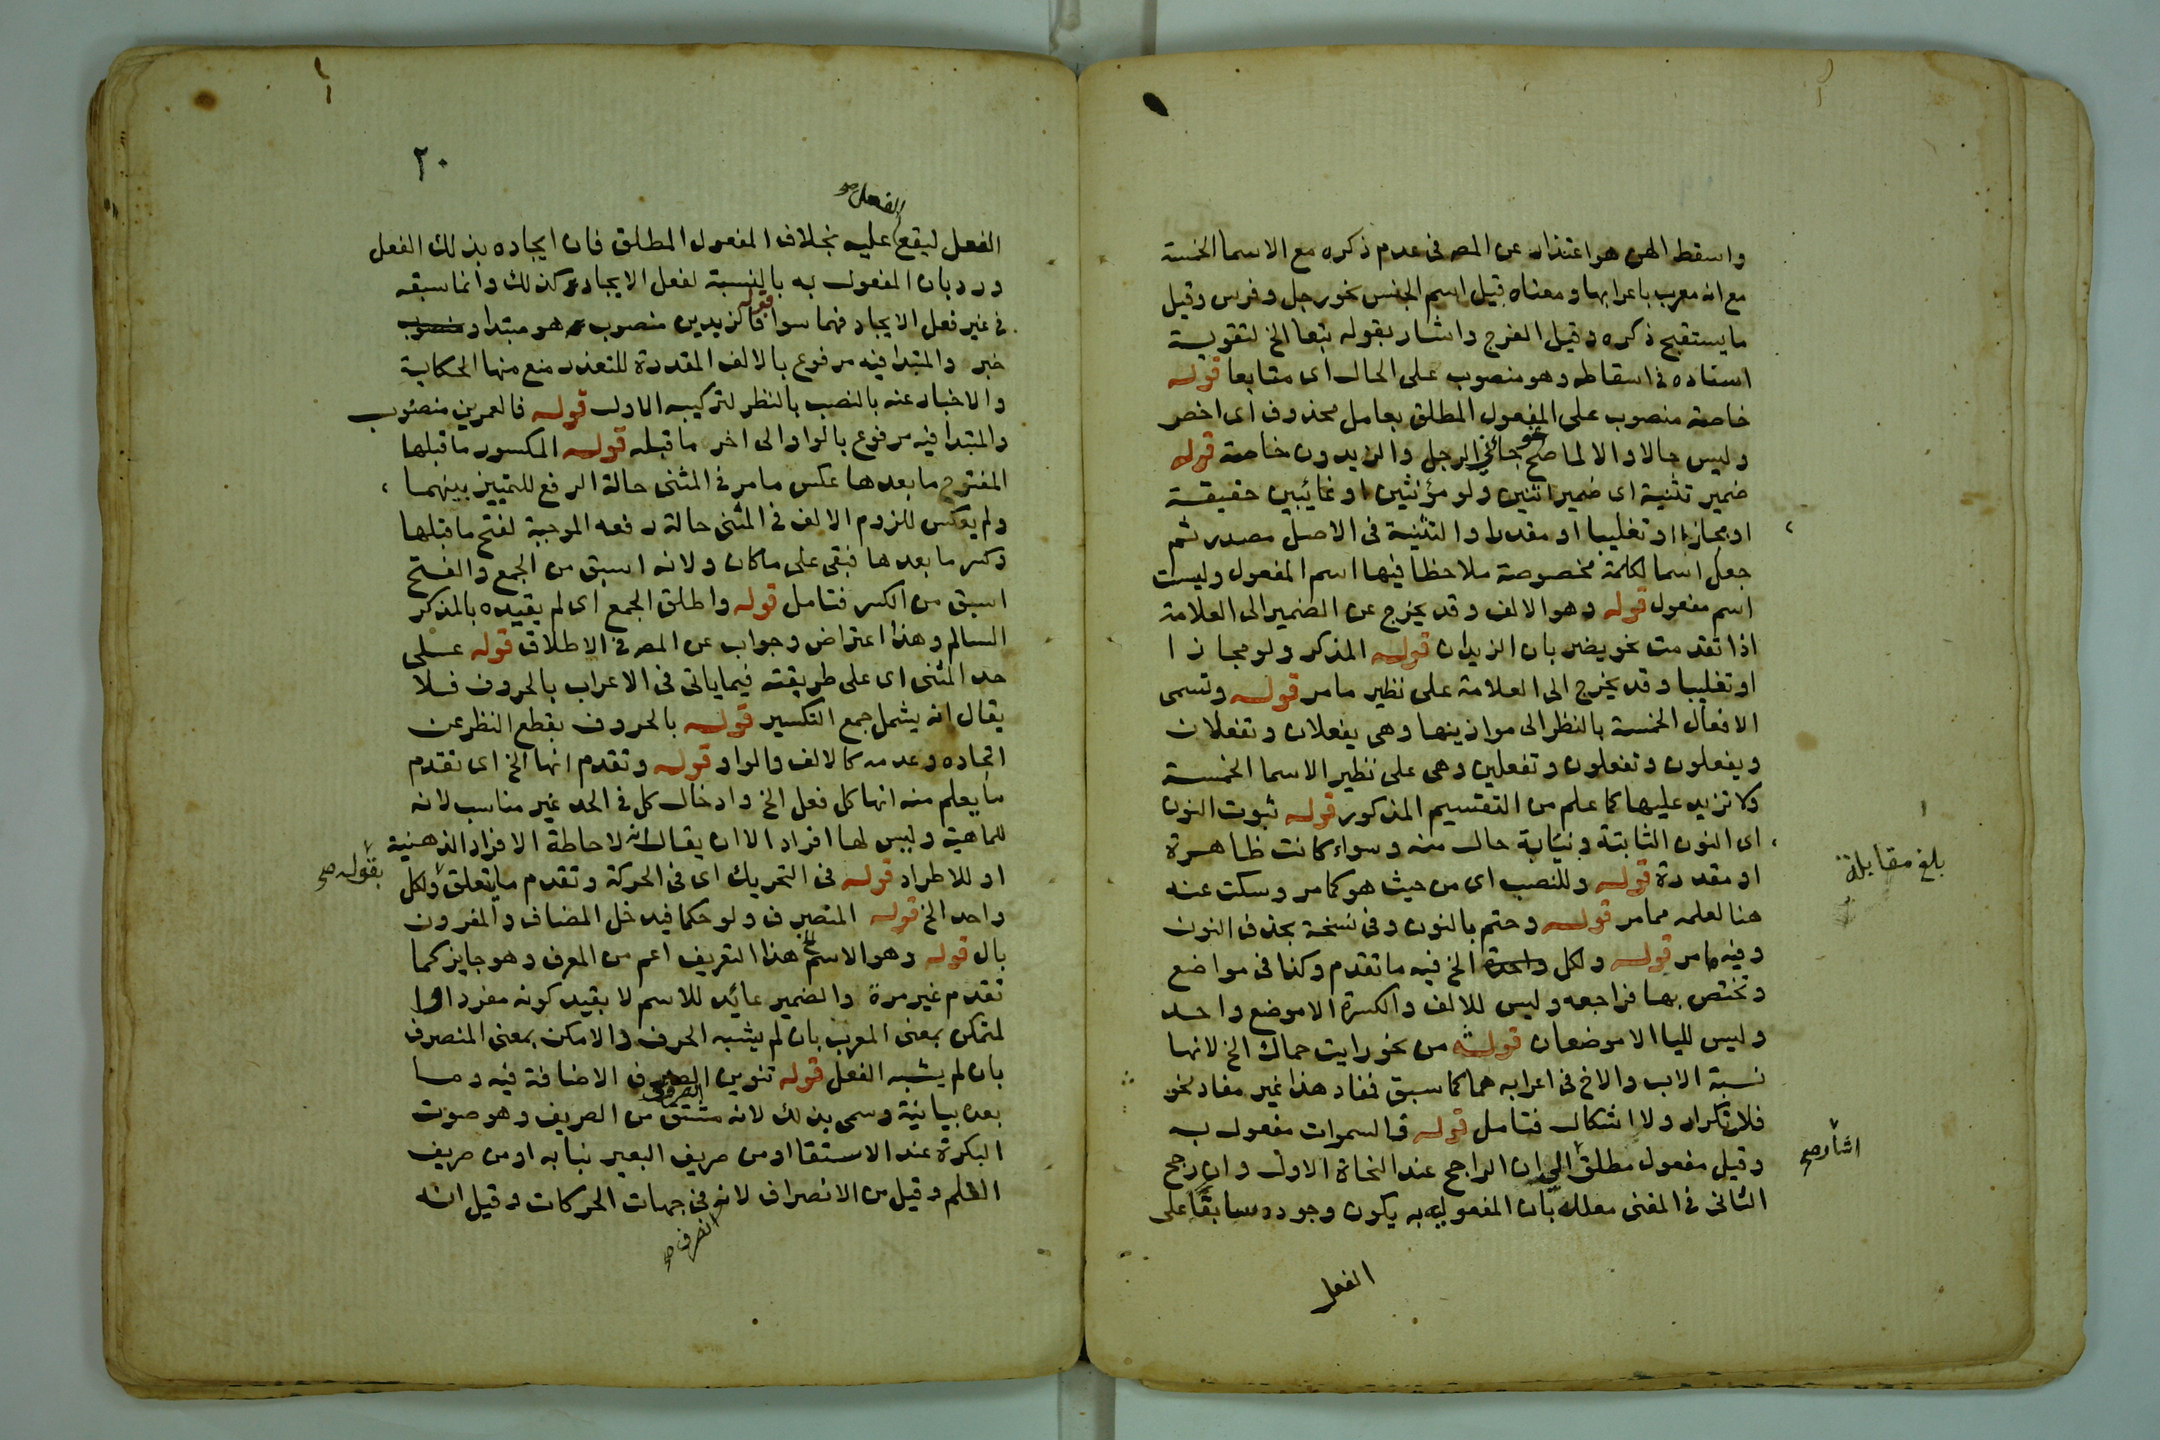 واسقط الهن هو اعتذار عن المصـ فى عدم ذكره مع الاسما الخمسة
مع انه معرب باعرابها ومعناه قيل اسم الجنس نحو رجل وفرس وقيل
ما يستقبح ذكره وقيل الفرج واشار بقوله تبعا الخ لتقوية
اسناده فى اسقاطه وهو منصوب على الحال اى متابعا قوله
خاصة منصوب على المفعول المطلق بعامل محذوف اى اخص
وليس حالا والا لما صح نحو جائنى الرجل والزيدون خاصة قوله
ضمير تثنية اى ضمير اثنين ولو مؤنثين او غائبين حقيقة
او مجازا او تغليبا او مقدرا والتثنية فى الاصل مصدر ثم
جعل اسما لكلمة مخصوصة ملاحظا فيها اسم المفعول وليست
اسم مفعول قوله وهو الالف وقد يخرج عن الضمير الى العلامة
اذا تقدمت نحو يضربان الزيدان قوله المذكر ولو مجازا
او تغليبا وقد يخرج الى العلامة على نظير ما مر قوله وتسمى
الافعال الخمسة بالنظر الى موازينها وهى يفعلان وتفعلان
ويفعلون وتفعلون وتفعلين وهى على نظير الاسما الخمسة
ولا تزيد عليها كما علم من التقسيم المذكور قوله ثبوت النون
اى النون الثابتة ونيابة حال منه وسواء كانت ظاهرة
او مقدرة قوله وللنصب اى من حيث هو كما مر وسكت عنه
هنا لعلمه مما مر قوله وختم بالنون وفى نسخة بحذف النون
وفيه ما مر قوله ولكل واحدة الخ فيه ما تقدم وكذا فى مواضع
وتختص بها فراجعه وليس للالف والكسرة الا موضع واحد
وليس لليا الا موضعان قوله من نحو رايت حماك الخ لانها
نسبة الاب والاخ فى اعرابه هما كما سبق فمفاد هذا غير مفاد نحو
فلا تكرار ولا اشكال فتامل قوله فالسموات مفعول به
وقيل مفعول مطلق الى ان الراجح عند النحاة الاول وان رجح
الثانى فى المغنى معللا بان المفعول به يكون وجوده سابقا على
الفعل
بلغ مقابلة
اشار صح
٢٠
الفعل صح
الفعل ليقع عليه بخلاف المفعول المطلق فان ايجاده بذلك الفعل
ورد بان المفعول به بالنسبة لفعل الايجاد كذلك وانما سبقه
فى غير فعل الايجاد فهما سوا قوله فاكزيدين منصوب هو مبتدا ومنصوب
خبر والمبتدا فيه مرفوع بالالف المقدرة للتعذر منع منها الحكاية
والاخبار عنه بالنصب بالنظر لتركيبه الاول قوله فالعمرين منصوب
والمبتدا فيه مرفوع بالواو الى اخر ما قبله قوله المكسور ما قبلها
المفتوح ما بعدها عكس ما مر فى المثنى حالة الرفع للتمييز بينهما
ولم يعكس للزوم الالف فى المثنى حالة رفعه الموجبة لفتح ما قبلها
وكسر ما بعدها فبقى على ما كان ولانه اسبق من الجمع والفتح
اسبق من الكسر فتامل قوله واطلق الجمع اى لم يقيده بالمذكر
السالم وهذا اعتراض وجواب عن المصـ فى الاطلاق قوله على
حد المثنى اى على طريقته فيما ياتى فى الاعراب بالحروف فلا
يقال انه يشمل جمع التكسير قوله بالحروف بقطع النظر عن
اتحاده وعدمه كالالف والواو قوله وتقدم انها الخ اى تقدم
ما يعلم منه انها كل فعل الخ وادخال كل فى الحد غير مناسب لانه
للماهية وليس لها افراد الا ان يقال انه لاحاطة الافراد الذهنية
او للاطراد قوله فى التحريك اى فى الحركة وتقدم ما يتعلق ولكل
بقوله صح
واحد الخ قوله المتصرف ولو حكما فيدخل المضاف والمقرون
بال قوله وهو الاسم هذا التعريف اعم من المعرف وهو جايز كما
تقدم غير مرة والضمير عائد للاسم لا بقيد كونه مفردا وا
لمتمكن بمعنى المعرب بان لم يشبه الحرف والامكن بمعنى المنصرف
بان لم يشبه الفعل قوله تنوين الصرف الاضافة فيه وما
بعده بيانية وسمى بذلك لانه مشتق من الصريف وهو صوت
البكرة عند الاستقا او من صريف البعير بنابه او من صريف
القلم وقيل من الانصراف لانه فى جهات الحركات وقيل انه
انصرف صح